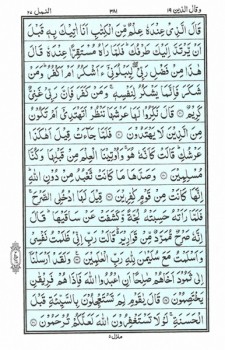 وقال الذين ١٩ ٣٨١ النمل ٢٧
قَالَ الَّذِيْ عِنْدَهٗ عِلْمٌ مِّنَ الْكِتٰبِ اَنَا اٰتِيْكَ بِهٖ قَبْلَ
اَنْ يَّرْتَدَّ اِلَيْكَ طَرْفُكَ فَلَمَّا رَاٰهُ مُسْتَقِرًّا عِنْدَهٗ قَالَ
هٰذَا مِنْ فَضْلِ رَبِّيْ لِيَبْلُوَنِيْٓ ءَاَشْكُرُ اَمْ اَكْفُرُ وَمَنْ
شَكَرَ فَاِنَّمَا يَشْكُرُ لِنَفْسِهٖ وَمَنْ كَفَرَ فَاِنَّ رَبِّيْ غَنِيٌّ
كَرِيْمٌ قَالَ نَكِّرُوْا لَهَا عَرْشَهَا نَنْظُرْ اَتَهْتَدِيْٓ اَمْ تَكُوْنُ
مِنَ الَّذِيْنَ لَا يَهْتَدُوْنَ فَلَمَّا جَآءَتْ قِيْلَ اَهٰكَذَا
عَرْشُكِ قَالَتْ كَاَنَّهٗ هُوَ وَاُوْتِيْنَا الْعِلْمَ مِنْ قَبْلِهَا وَكُنَّا
مُسْلِمِيْنَ وَصَدَّهَا مَا كَانَتْ تَّعْبُدُ مِنْ دُوْنِ اللّٰهِ
اِنَّهَا كَانَتْ مِنْ قَوْمٍ كٰفِرِيْنَ قِيْلَ لَهَا ادْخُلِي الصَّرْحَ
فَلَمَّا رَاَتْهُ حَسِبَتْهُ لُجَّةً وَّكَشَفَتْ عَنْ سَاقَيْهَا قَالَ
اِنَّهٗ صَرْحٌ مُّمَرَّدٌ مِّنْ قَوَارِيْرَ قَالَتْ رَبِّ اِنِّيْ ظَلَمْتُ نَفْسِيْ
وَاَسْلَمْتُ مَعَ سُلَيْمٰنَ لِلّٰهِ رَبِّ الْعٰلَمِيْنَ وَلَقَدْ اَرْسَلْنَآ
اِلٰى ثَمُوْدَ اَخَاهُمْ صٰلِحًا اَنِ اعْبُدُوا اللّٰهَ فَاِذَا هُمْ فَرِيْقٰنِ
يَخْتَصِمُوْنَ قَالَ يٰقَوْمِ لِمَ تَسْتَعْجِلُوْنَ بِالسَّيِّئَةِ قَبْلَ
الْحَسَنَةِ لَوْلَا تَسْتَغْفِرُوْنَ اللّٰهَ لَعَلَّكُمْ تُرْحَمُوْنَ